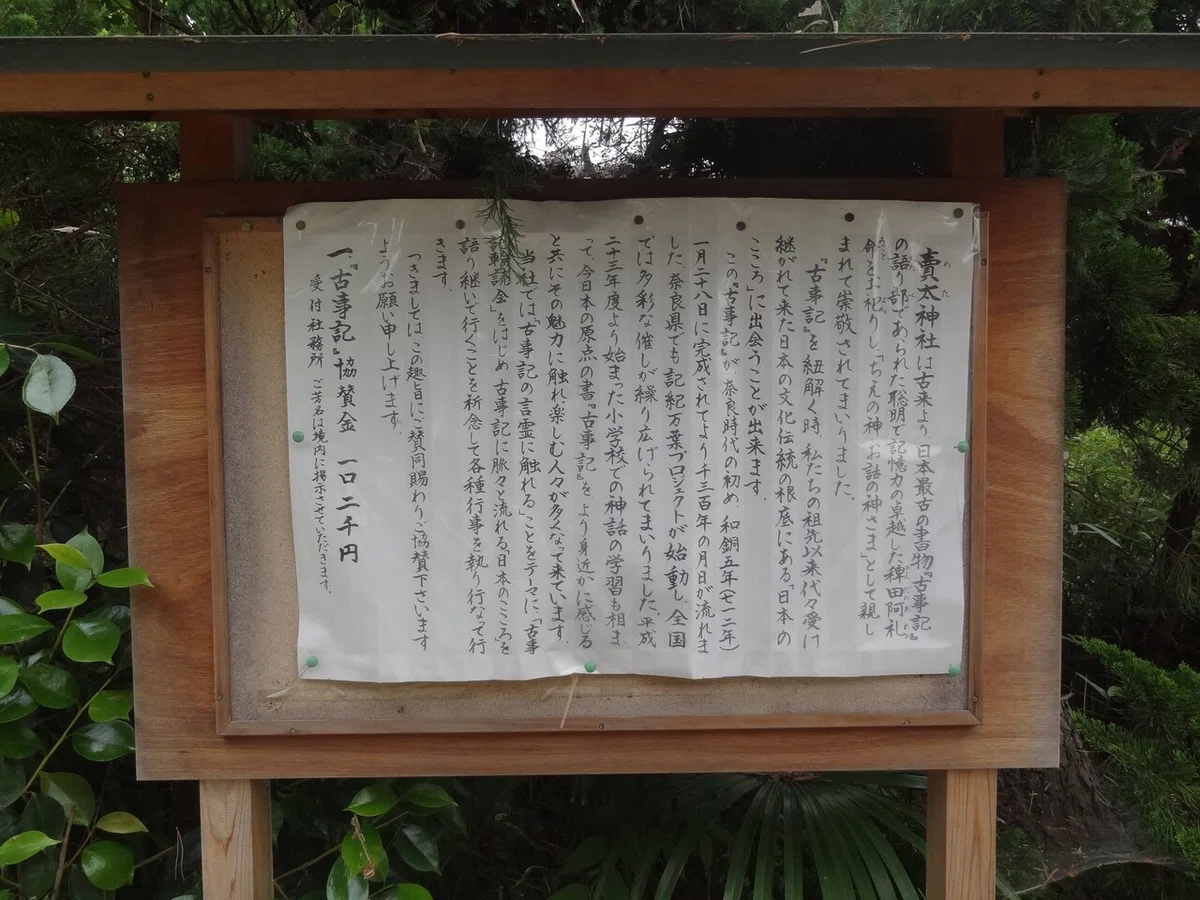 賣太神社は古来より、日本最古の書物『古事記』
の語り部であられた聡明で記憶力の卓越した稗田阿礼
命をお祀りし、「ちえの神、お話の神さま」として親し
まれて崇敬されてまいりました。
『古事記』を紐解く時、私たちの祖先以来代々受け
継がれて来た日本の文化伝統の根底にある「日本の
こころ」に出会うことが出来ます。
この『古事記』が奈良時代の初め、和銅五年(七一二年)
一月二十八日に完成されてより千三百年の月日が流れま
した。奈良県でも記紀万葉プロジェクトが始動し、全国
では多彩な催しが繰り広げられてまいりました。平成
二十三年度より始まった小学校での神話の学習も相ま
って、今日本の原点の書『古事記』を、より身近かに感じる
と共にその魅力に触れ、楽しむ人々が多くなって来ています。
当社では「古事記の言霊に触れる」ことをテーマに、「古事
記輪読会」をはじめ古事記に脈々と流れる「日本のこころ」を
語り継いで行くことを祈念して各種行事を執り行なって行
きます。
つきましては、この趣旨にご賛同賜わりご協賛下さいます
ようお願い申し上げます。
一、『古事記』協賛金 一口 二千円
受付 社務所 ご芳名は境内に掲示させていただきます。